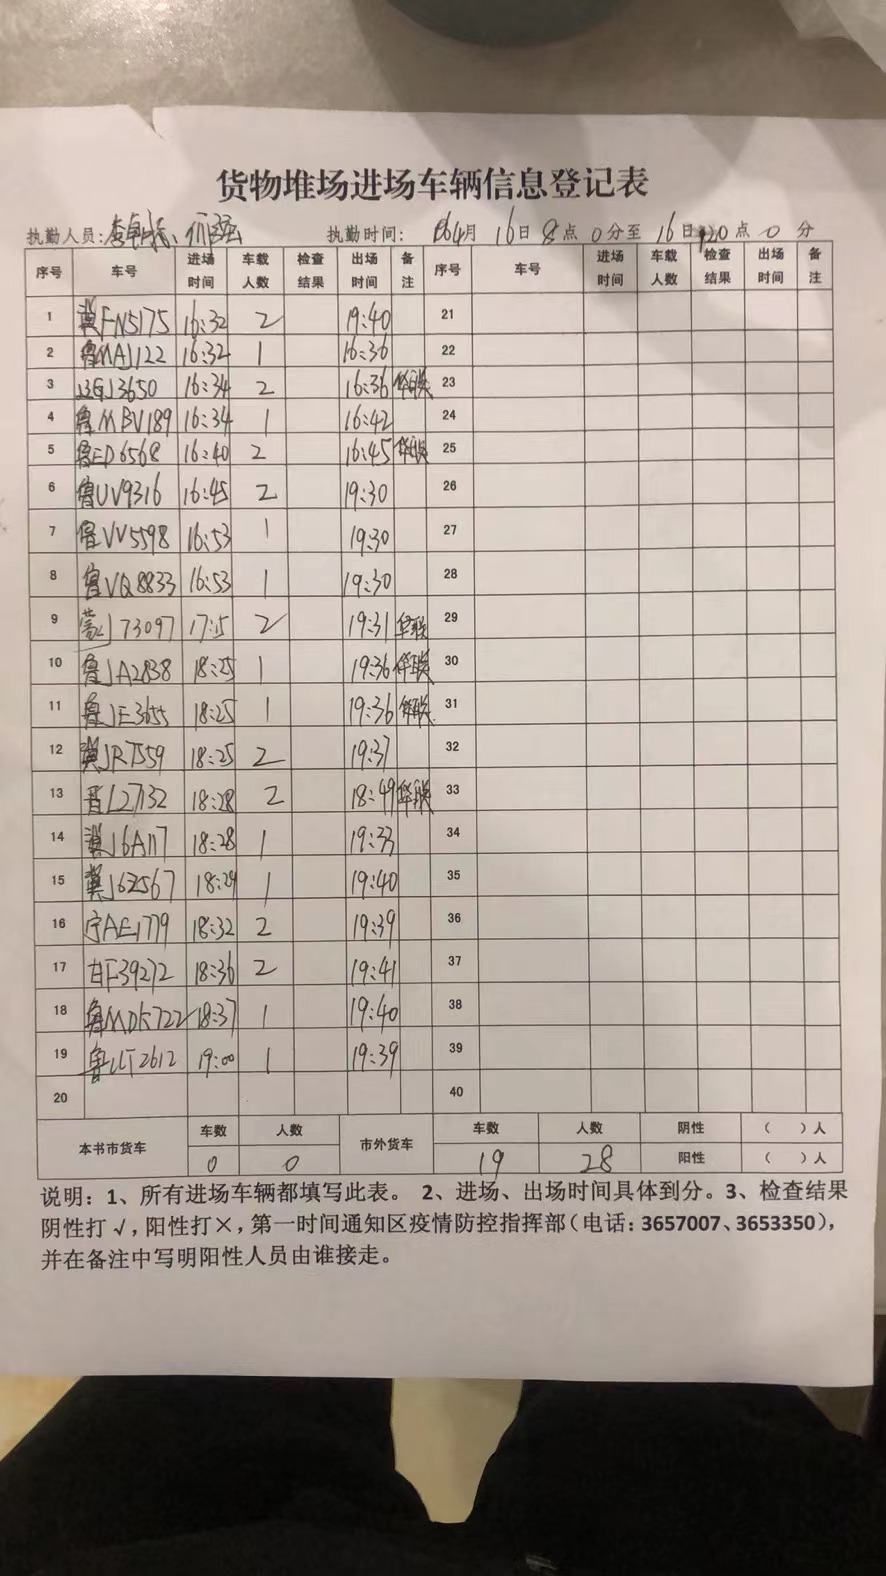 货物堆场进场车辆信息登记表
执勤人员: 执勤时间: 4月 16日 8点 0分至 16日 20点 0分
序号 车号 进场时间 车载人数 检查结果 出场时间 备注 序号 车号 进场时间 车载人数 检查结果 出场时间 备注
1 冀FN5175 16:32 2 19:40 21
2 鲁MAJ122 16:32 1 16:36 22
3 J3650 16:34 2 16:36 华联 23
4 鲁MBV189 16:34 1 16:42 24
5 鲁ED6568 16:40 2 16:45 华联 25
6 鲁UV9316 16:45 2 19:30 26
7 鲁VV5598 16:53 1 19:30 27
8 鲁VQ8833 16:53 1 19:30 28
9 蒙J73097 17:15 2 19:31 华联 29
10 鲁JA2838 18:25 1 19:36 华联 30
11 鲁JE3655 18:25 1 19:36 华联 31
12 冀JR7559 18:25 2 19:37 32
13 晋L27132 18:28 2 18:49 华联 33
14 冀J6A117 18:28 1 19:33 34
15 冀J6Z567 18:29 1 19:40 35
16 宁AE1779 18:32 2 19:39 36
17 甘F39272 18:36 2 19:41 37
18 鲁MDK722 18:37 1 19:40 38
19 2612 19:00 1 19:39 39
20 40
本书市货车 车数 人数 市外货车 车数 人数 阴性 ( )人
0 0 19 28 阳性 ( )人
说明:1、所有进场车辆都填写此表。 2、进场、出场时间具体到分。3、检查结果
阴性打√,阳性打×,第一时间通知区疫情防控指挥部(电话:3657007、3653350),
并在备注中写明阳性人员由谁接走。